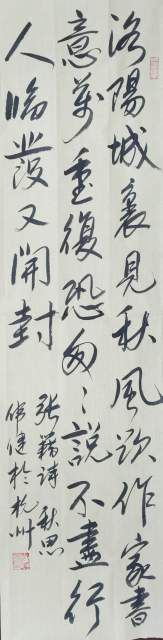 洛陽城裏見秋風欲作家書
意萬重復恐匆々說不盡行
人臨發又開封
張籍詩 秋思
偉健於杭州